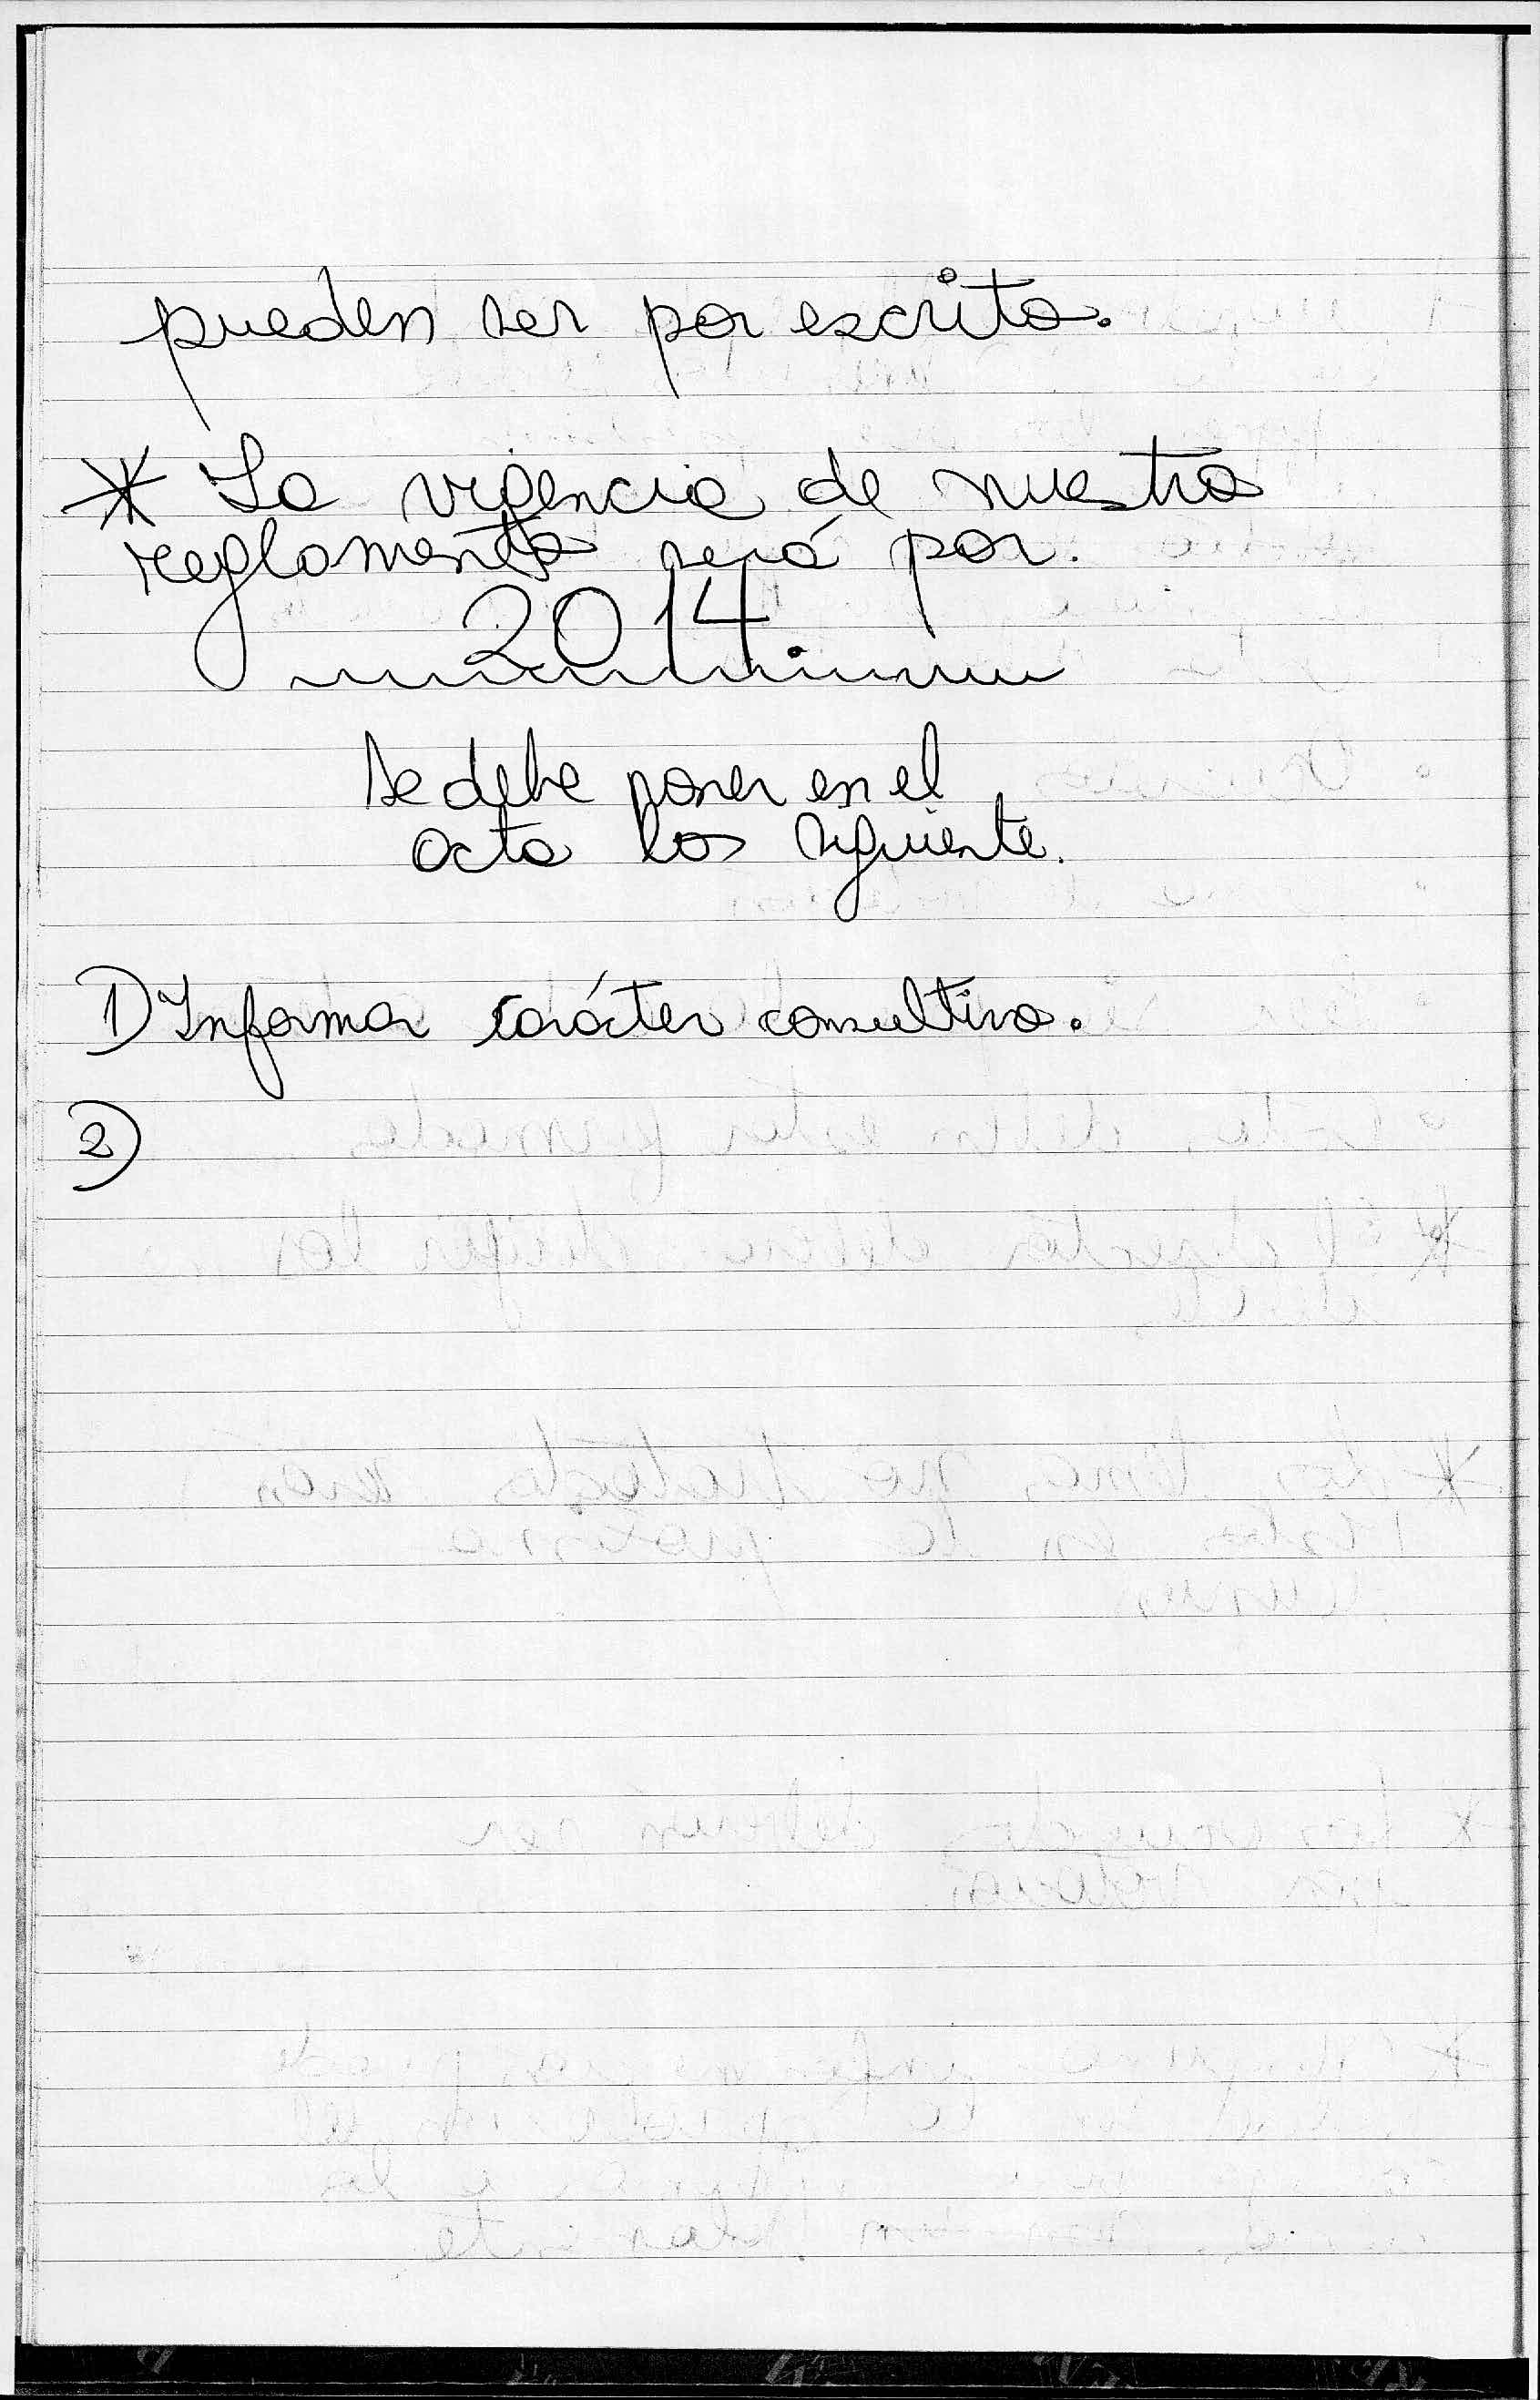 pueden ser por escrito.
* La vigencia de nuestro
reglamento será por.
2014.
Se debe poner en el
acta los siguiente.
1) Informar carácter consultivo.
2)